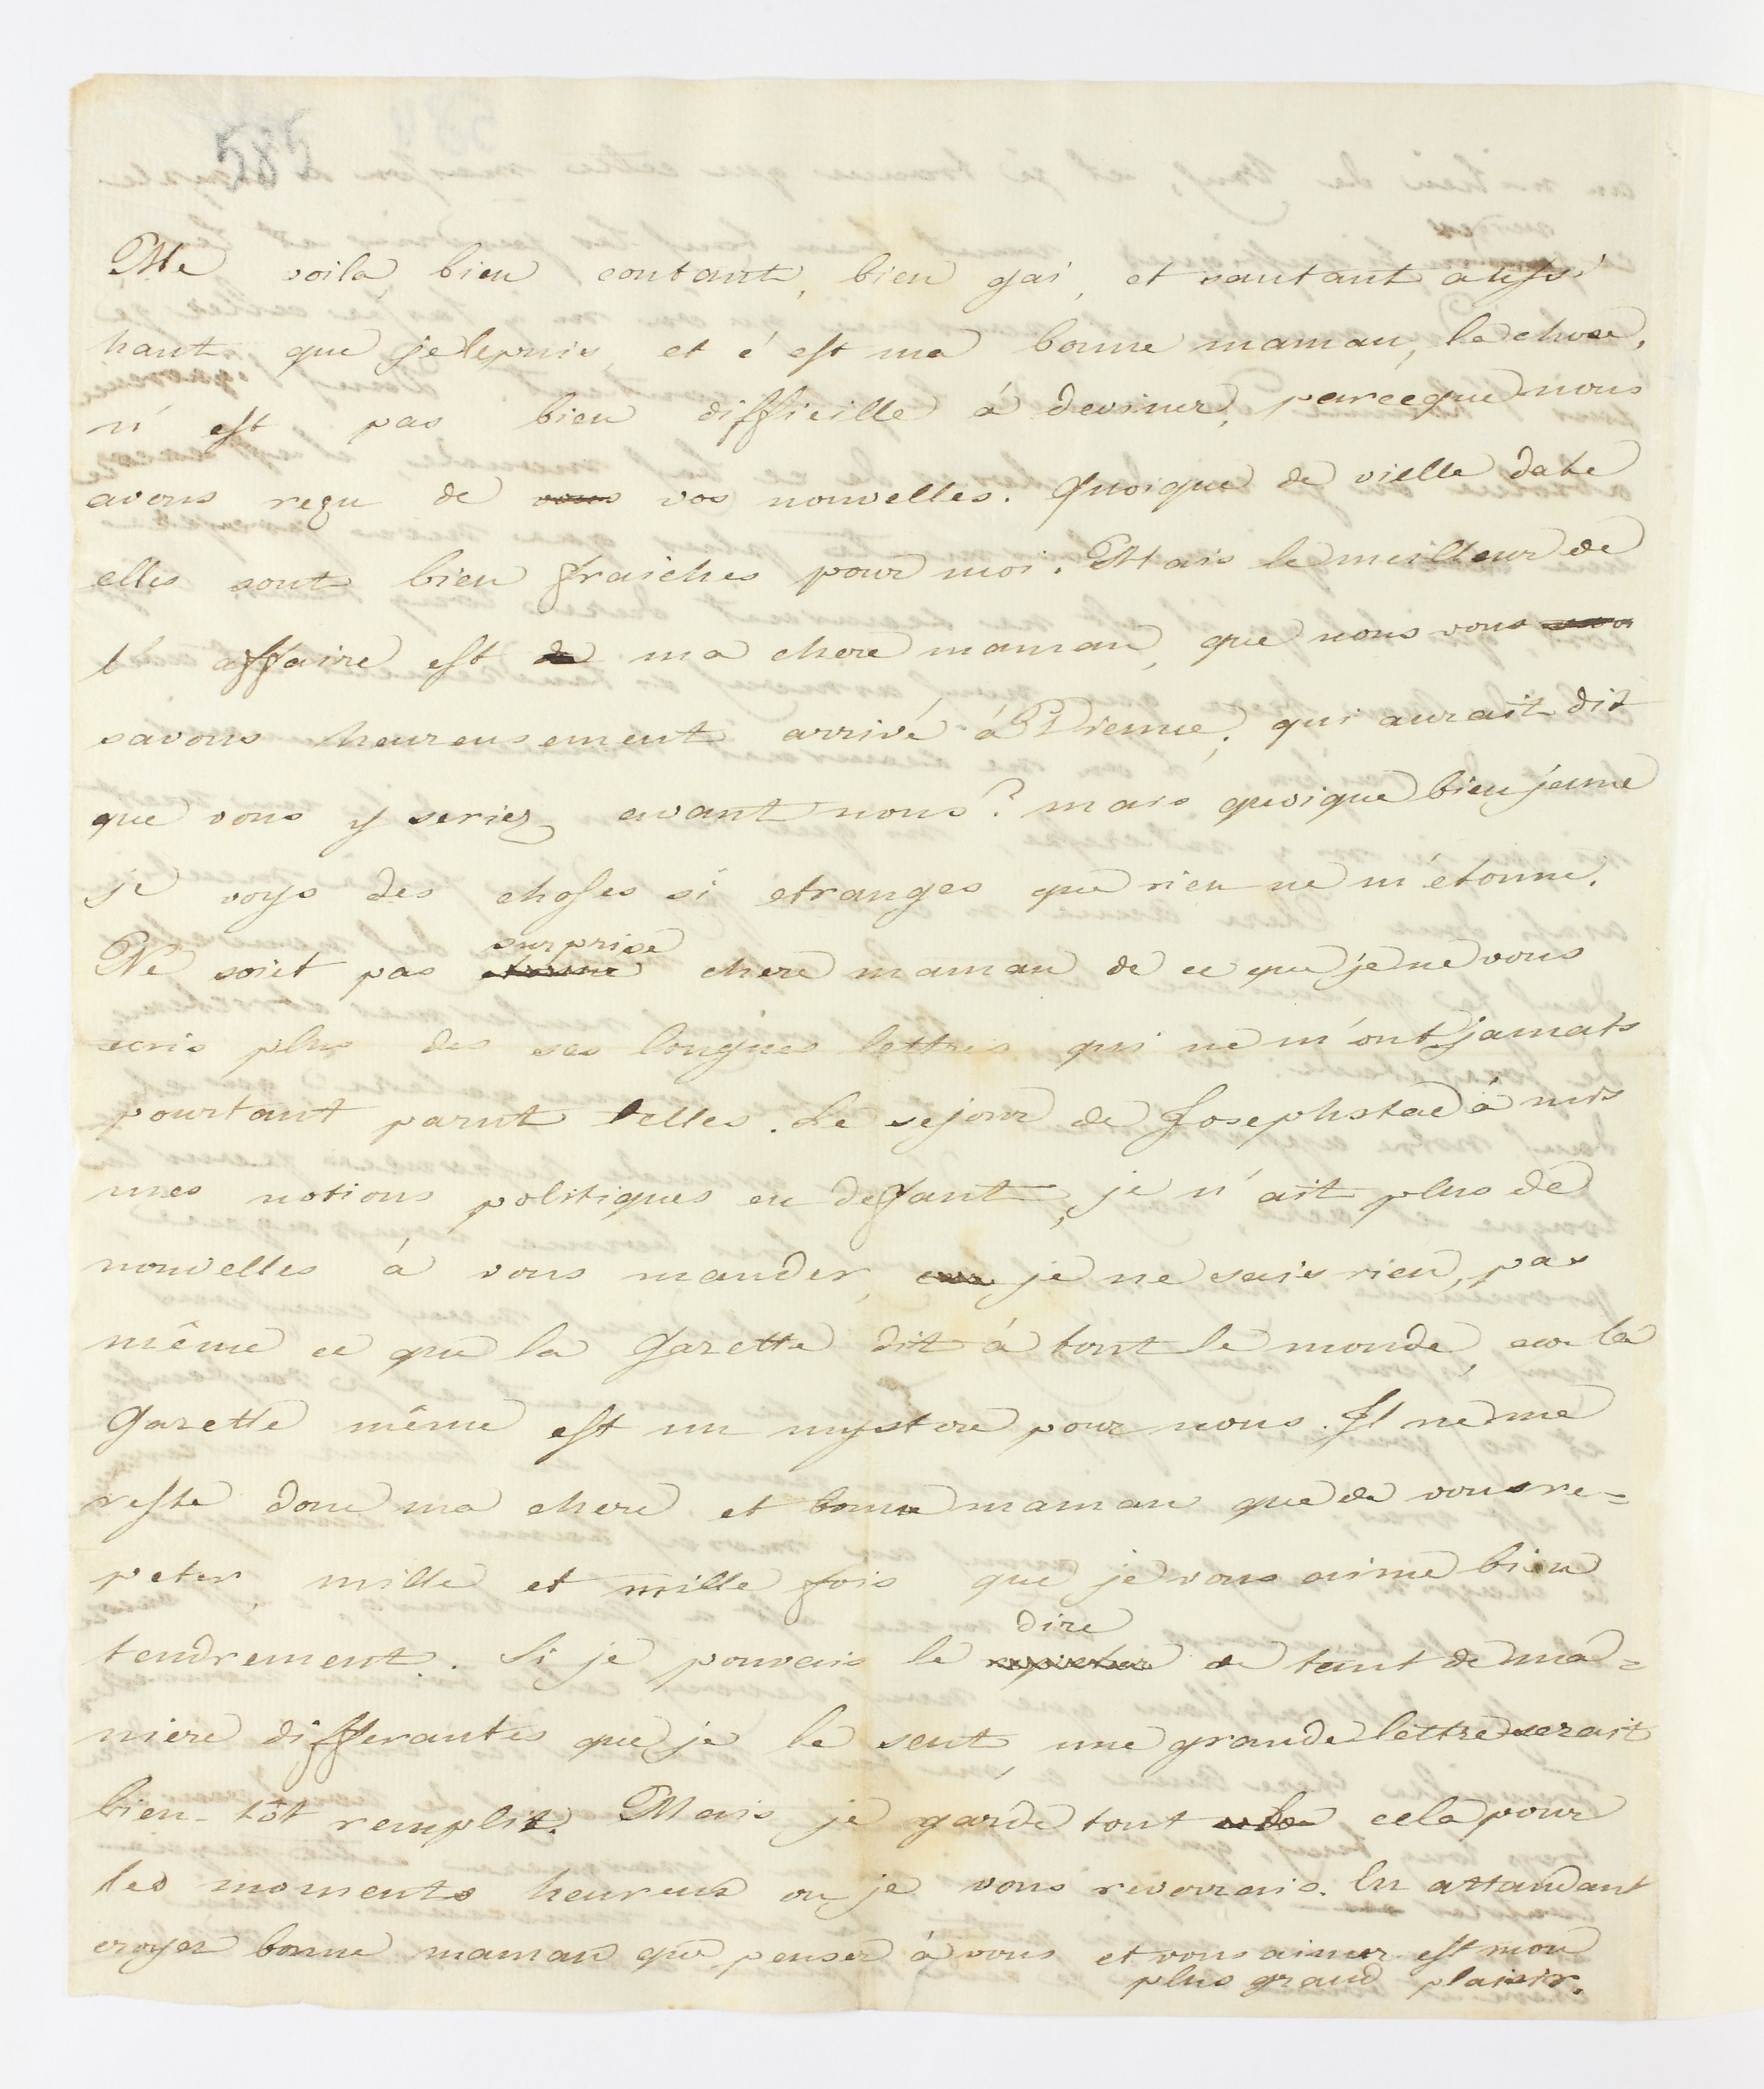 585
Me voila, bien contant, bien gai, et sautant aussi
haut que je le puis, et c'est ma bonne maman, la chose,
n'est pas bien difficille á deviner, parceque nous
avons reçu de vous vos nouvelles. Quoique de vielle date
elles sont bien fraiches pour moi. Mais le meilleur de
l'affaire est de ma chere maman, que nous vous
savons heureusement arrivé á Vienne; qui aurait dit
que vous y seriez avant nous? mais quoique bien jeune
je voys des choses si etranges que rien ne m'étonne.
surprise
Ne soiet pas etonné chere maman de ce que je ne vous
ecris plus des ses longues lettres qui ne m'ont jamais
pourtant parut telles. Le sejour de Josephstad á mis
mes notions politiques en defaut, je n'ait plus de
nouvelles á vous mander, car je ne sais rien, pas
même ce que la Gazette dit á tout le monde, car la
Gazette même est un mystere pour nous. Il ne me
reste donc ma chere et bonne maman que de vous re=
peter, mille et mille fois que je vous aime bien
dire
tendrement. Si je pouvais le repeter de tant de ma=
niere differantes que je le sent, une grande lettre serait
bien-tôt remplit. Mais je garde tout cela pour
les moments heureux ou je vous reverrais. En attandant
croyez bonne maman que penser á vous et vous aimer est mon
plus grand plaisir.